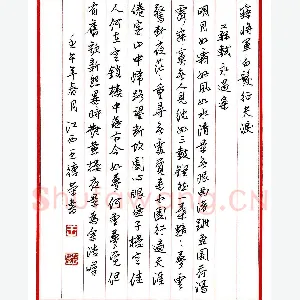 蘇軾永遇樂
明月如霜好風如水清景無限曲港跳魚圓荷瀉
露寂寞無人見紞如三鼓鏗然一葉黯黯夢雲
驚斷夜茫茫重尋無處覺來小園行遍天涯
倦客山中歸路望斷故園心眼燕子樓空佳
人何在空鎖樓中燕古今如夢何曾夢覺但
有舊歡新怨異時對黃樓夜景為余浩嘆
年春月江西王德榮書